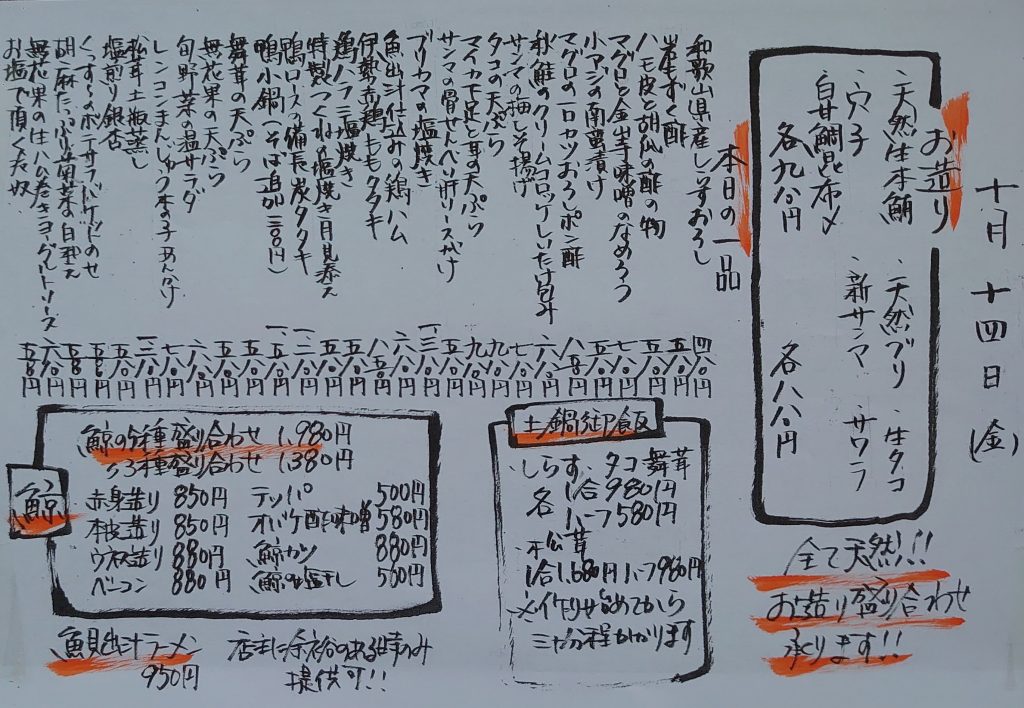 十月十四日(金)
お造り
・天然生本鮪 ・天然ブリ ・生タコ
・穴子 ・新サンマ ・サワラ
白甘鯛昆布〆
各九八〇円 各八八〇円
全て天然!!
お造り盛り合わせ
承ります!!
本日の一品
和歌山県産しらすおろし 四八〇円
岩もずく酢 五八〇円
ハモ皮と胡瓜の酢の物 五八〇円
マグロと金山寺味噌のなめろう 七八〇円
小アジの南蛮漬け 五八〇円
マグロの一口カツおろしポン酢 八五〇円
秋鮭のクリームコロッケしいたけ包み 六八〇円
サンマの梅しそ揚げ 七八〇円
タコの天ぷら 九八〇円
マイカ下足と耳の天ぷら 九八〇円
サンマの骨せんべい肝ソースがけ
ブリカマの塩焼き
魚出汁仕込みの鶏ハム
伊勢赤鶏ももタタキ
鶏ハラミ塩焼き
特製つくねの塩焼き月見添え
鴨ロースの備長炭タタキ
鴨小鍋(そば追加三〇〇円)
舞茸の天ぷら
無花果の天ぷら
旬野菜の温サラダ
レンコンまんじゅうきの子あんかけ
松茸土瓶蒸し
塩煎り銀杏
くっすーのポテサラバゲットのせ
胡麻たっぷり菊菜の白和え
無花果の生ハム巻きヨーグルトソース
お塩で頂く冷奴
土鍋御飯
しらす・タコ・舞茸
各 1合980円
ハーフ580円
松茸
1合1,680円 ハーフ980円
※作りはじめてから
三十分程かかります
鯨
鯨の5種盛り合わせ 1,980円
〃3種盛り合わせ 1,380円
赤身造り 850円 テッパ 500円
本皮造り 850円 オバケ酢味噌 580円
ウネ造り 880円 鯨カツ 880円
ベーコン 880円 鯨の塩干し 500円
魚貝出汁ラーメン
950円
店主に余裕のある時のみ
提供可!!